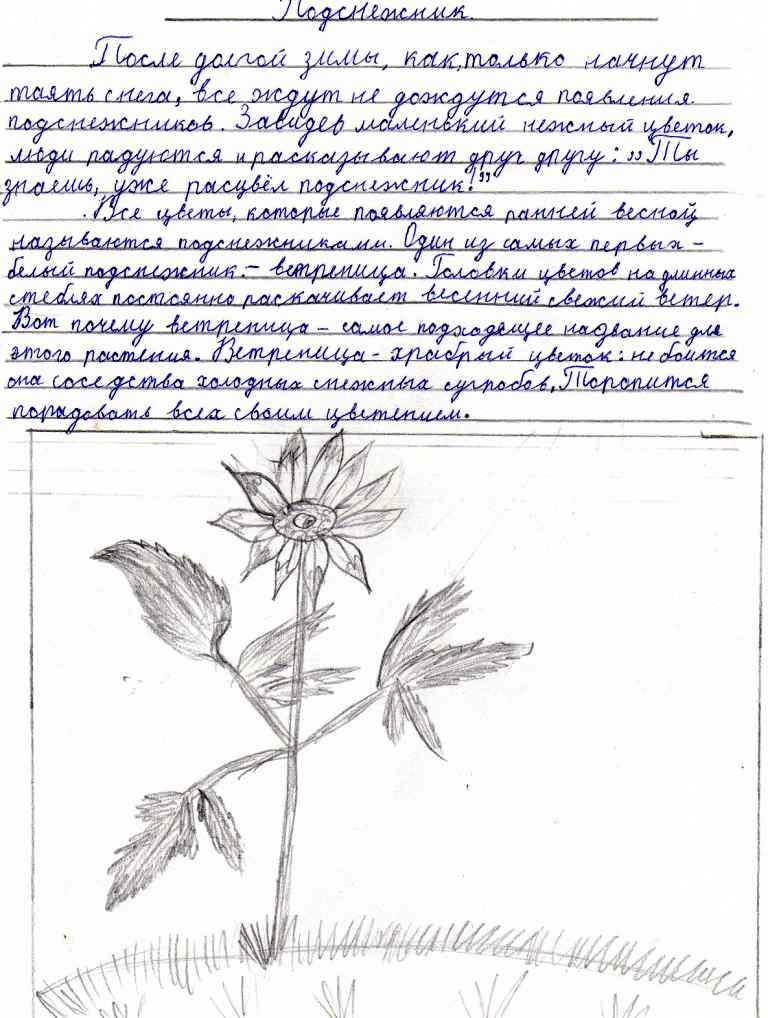 Подснежник.
После долгой зимы, как только начнут
таять снега, все ждут не дождутся появления
подснежников. Завидев маленький нежный цветок,
люди радуются и рассказывают друг другу: „Ты
знаешь, уже расцвёл подснежник!”
Все цветы, которые появляются ранней весной
называются подснежниками. Один из самых первых –
белый подснежник – ветреница. Головки цветов на длинных
стеблях постоянно раскачивает весенний свежий ветер.
Вот почему ветреница – самое подходящее название для
этого растения. Ветреница – храбрый цветок: не боится
она соседства холодных снежных сугробов. Торопится
порадовать всех своим цветением.